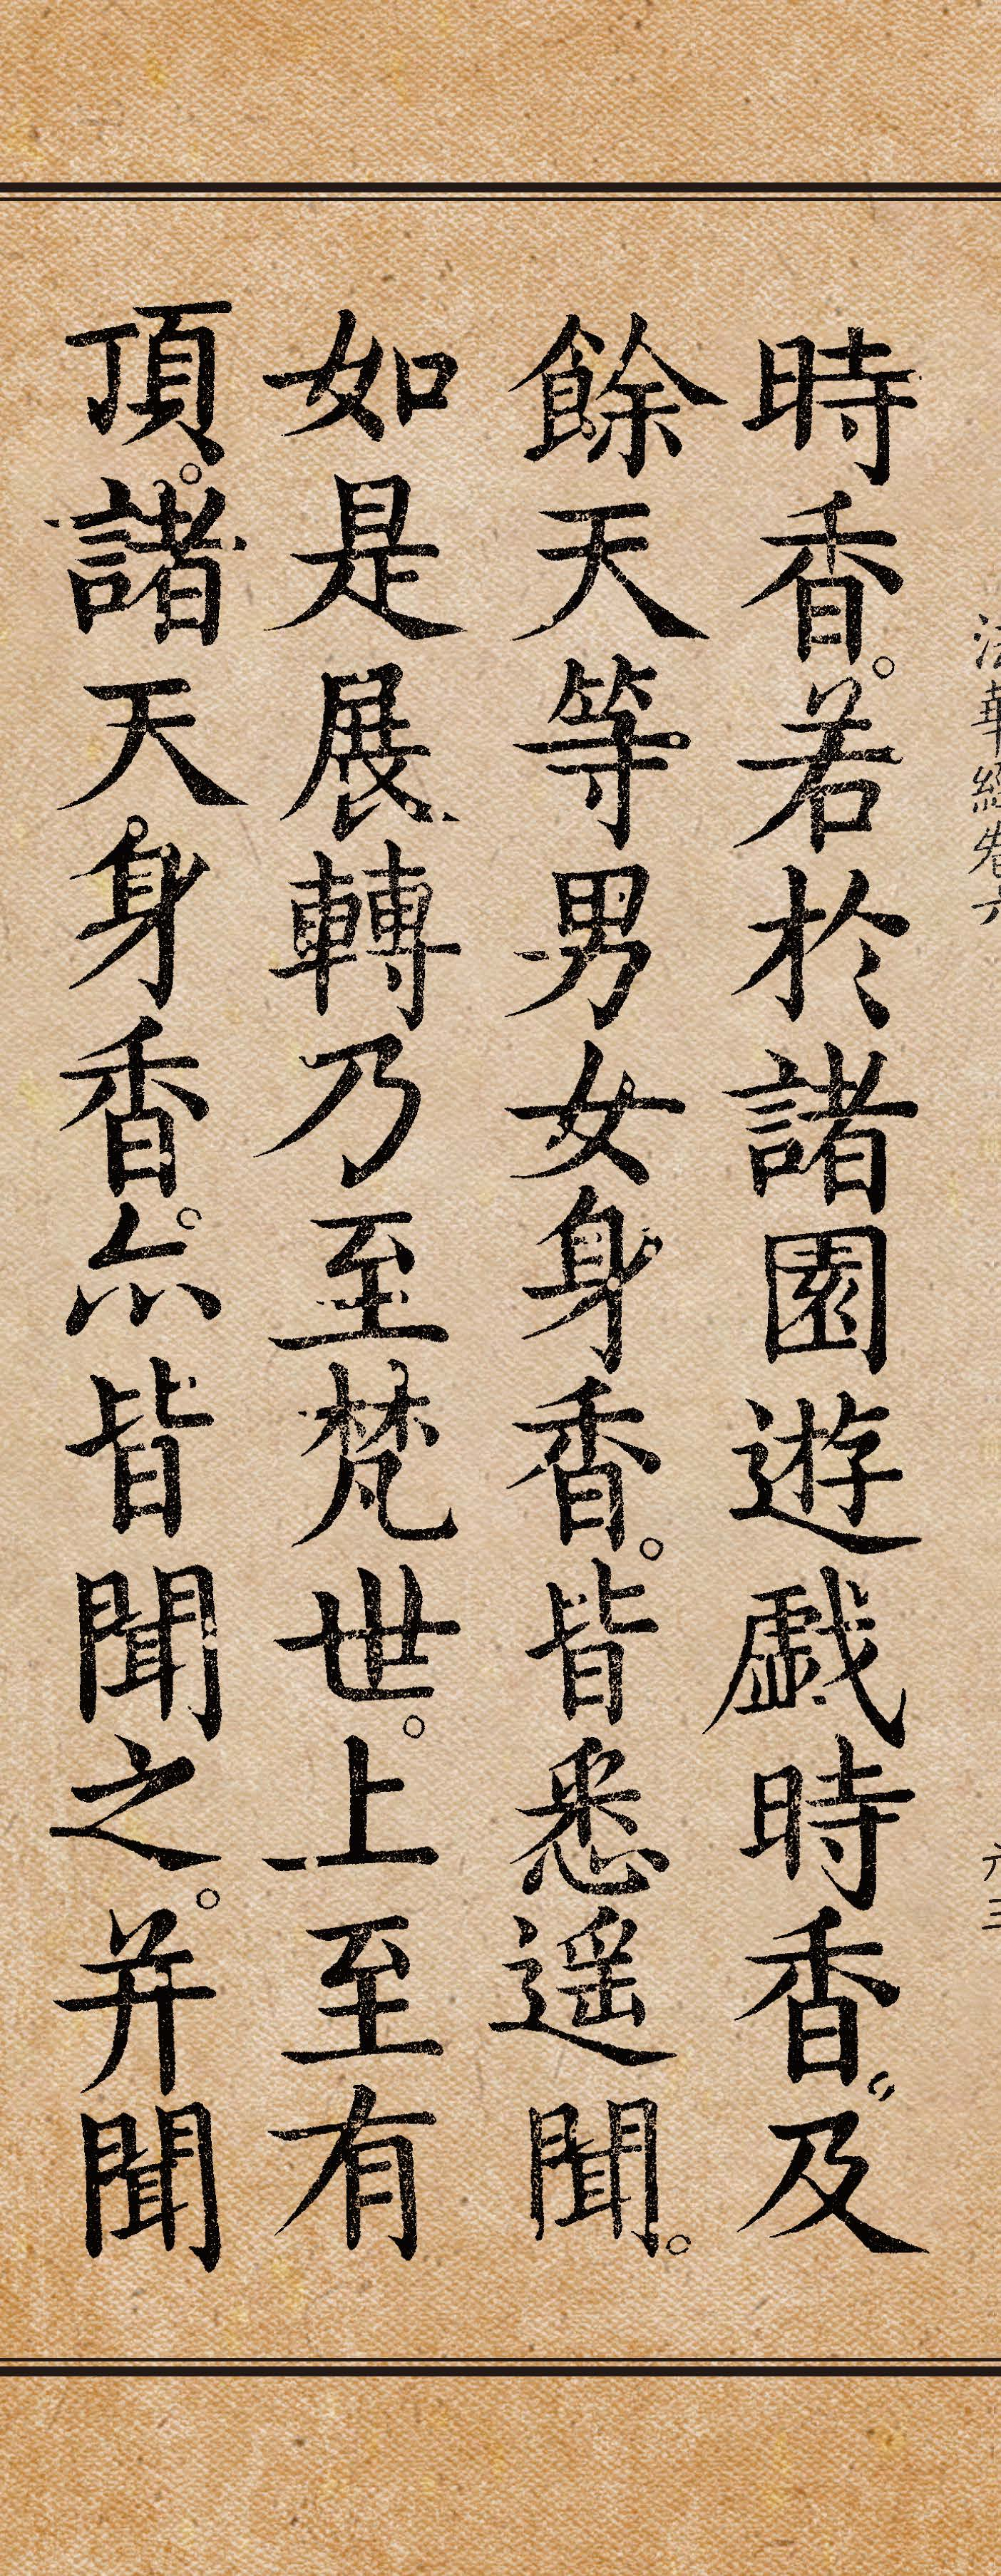 法華經卷六
六三
時香。若於諸園遊戲時香。及
餘天等男女身香。皆悉遥聞。
如是展轉乃至梵世。上至有
頂。諸天身香。亦皆聞之。并聞